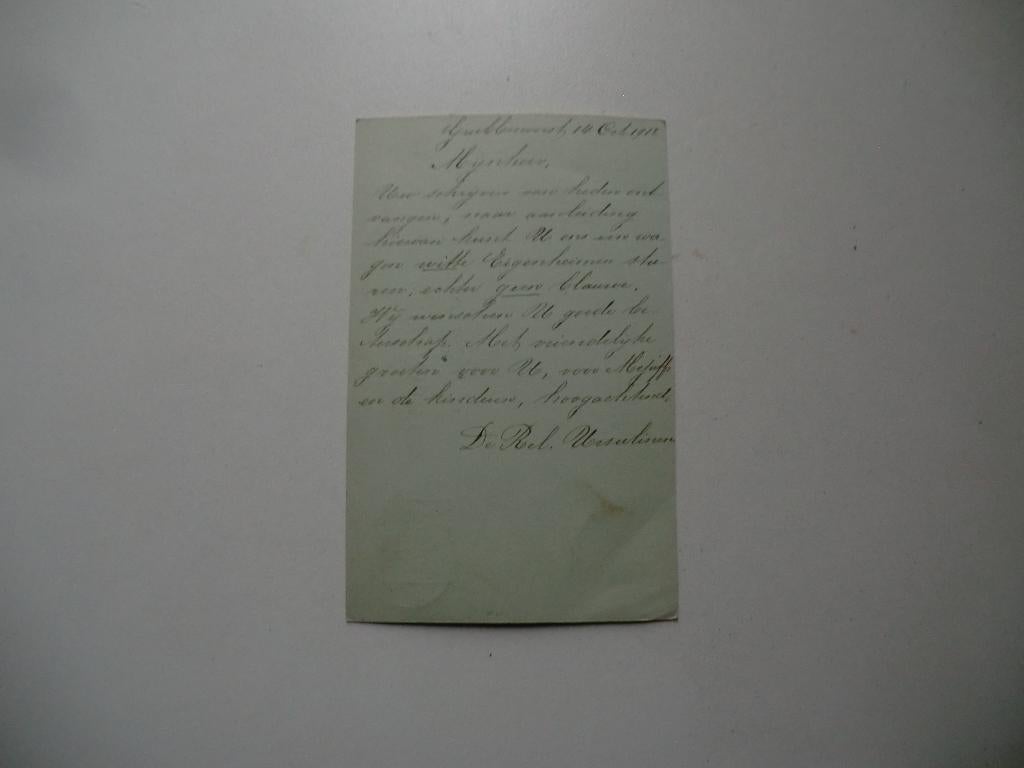 Grubbenvorst, 14 Oct. 1912
Mynheer,
Uw schryven van heden ont
vangen, naar aanleiding
hiervan kunt U ons een wa-
gon witte Eigenheimer stu
ren, echter geen blauwe.
Wy wenschen U goede be-
terschap. Met vriendelyke
groeten voor U, voor Mejuff
en de kinderen, hoogachtend,
De Rel. Ursulinen